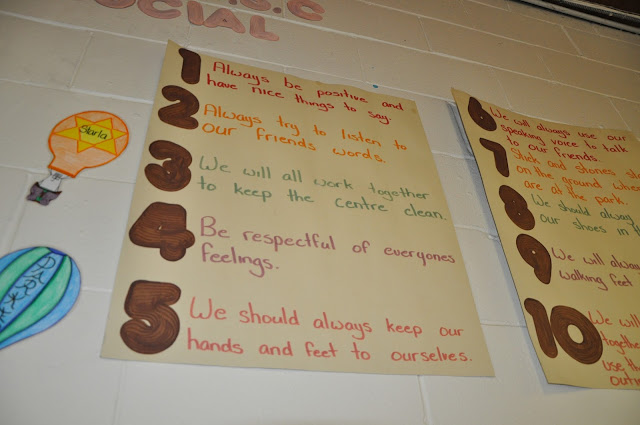 S.C.C
SOCIAL
Starla
1 Always be positive and
have nice things to say.
2 Always try to listen to
our friends words.
3 We will all work together
to keep the centre clean.
4 Be respectful of everyones
feelings.
5 We should always keep our
hands and feet to ourselves.
6 We will always use our
speaking voice to talk
to our friends.
7 Stick and stones
on the ground
are at the park.
8 We should
our shoes in
9 We will
walking feet
10 We will